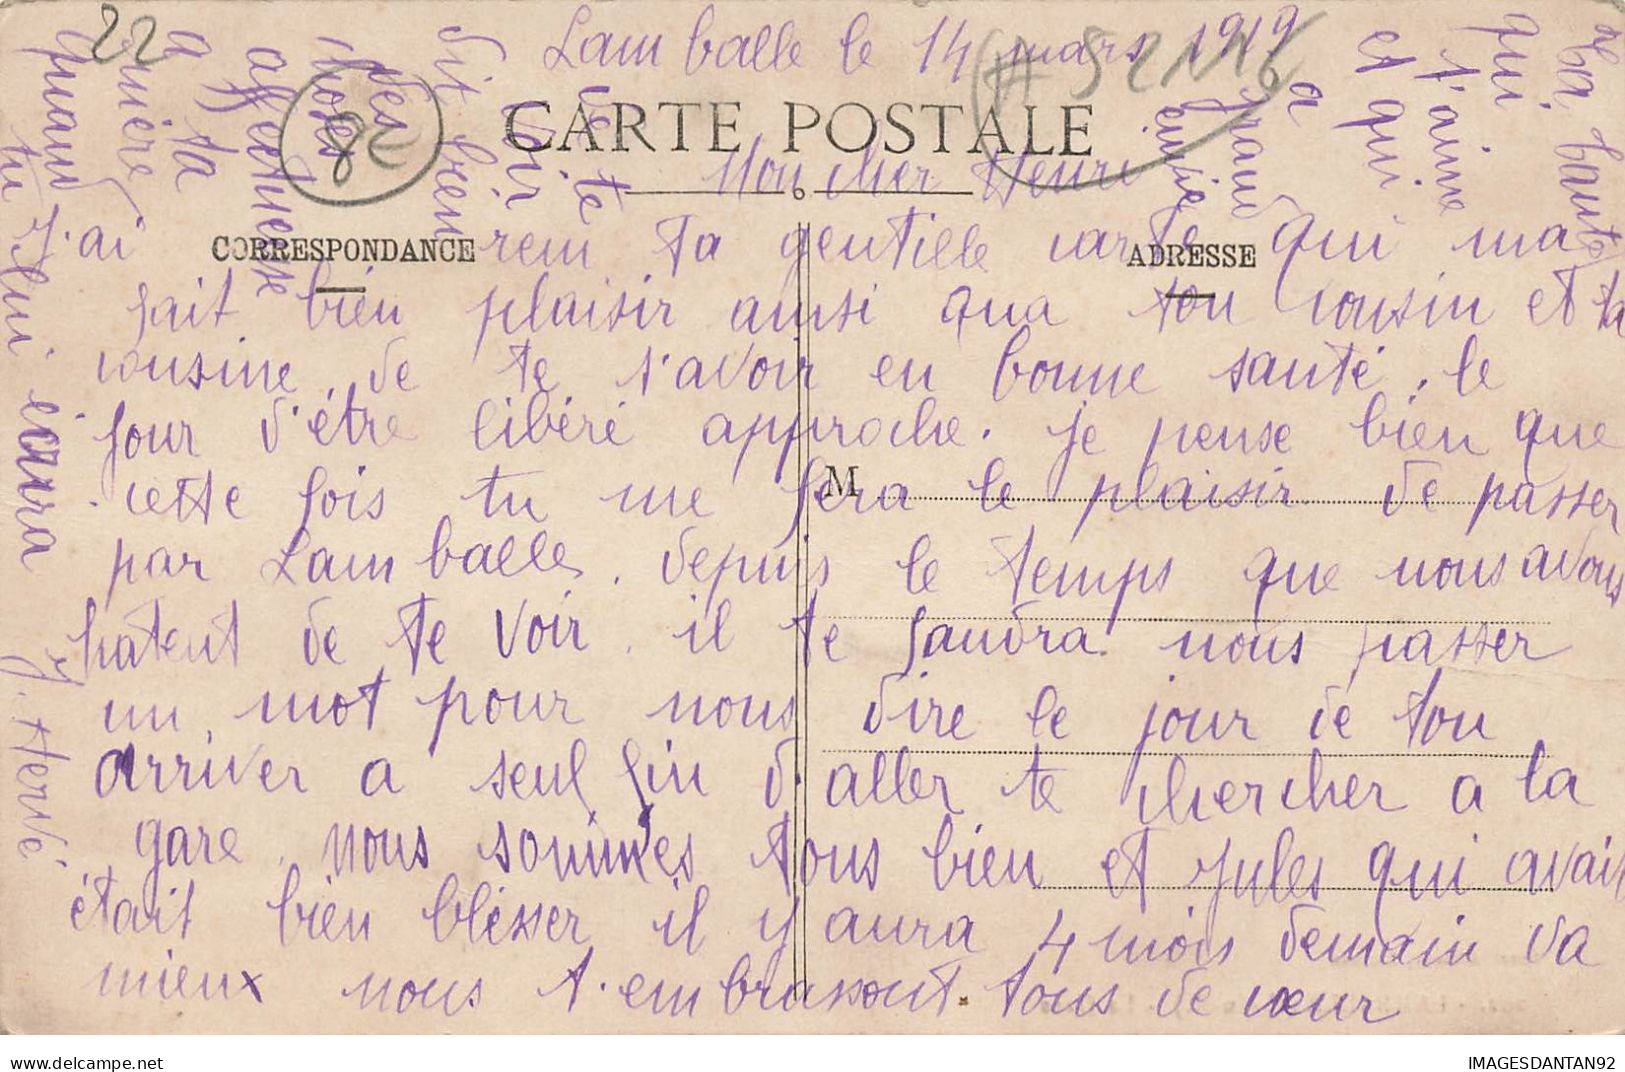 22
Lamballe le 14 mars 1919
82
CARTE POSTALE
Mon cher Henri
CORRESPONDANCE
ADRESSE
J'ai reçu ta gentille carte qui ma
fait bien plaisir ainsi qua ton cousin et ta
cousine. de te s'avoir en bonne santé. le
jour d'être libéré approche. je pense bien que
cette fois tu me fera le plaisir de passer
M
par Lamballe. depuis le temps que nous avons
hatent de te voir. il te faudra nous passer
un mot pour nous dire le jour de ton
arriver a seul fin d'aller te chercher a la
gare. nous sommes tous bien et jules qui avait
était bien blésser il y aura 4 mois demain va
mieux nous t'embrassont tous de cœur
ta tante
qui t'aime
et qui
a grand
envie
de te
voir
dit bien
des
choses
affectueuse
a ta
mère
quand
tu lui écrira
J. Hervé
IMAGESDANTAN92